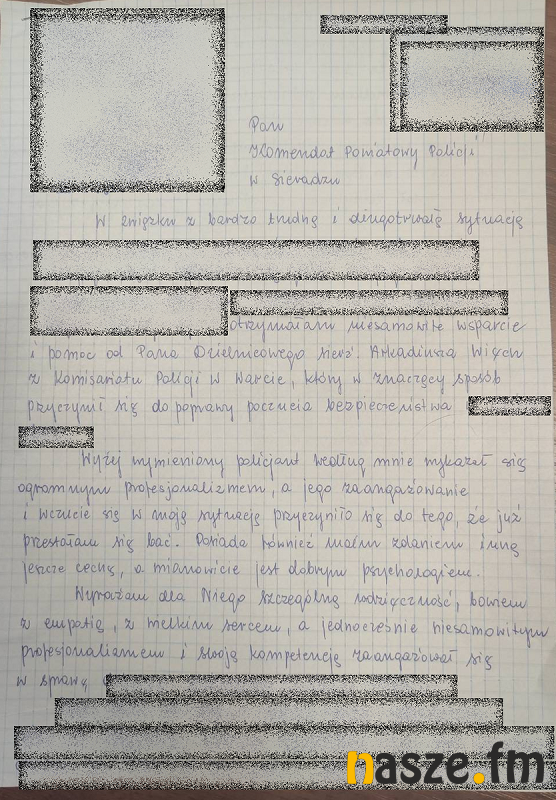 Pan
Komendat Powiatowy Policji
w Sieradzu
W związku z bardzo trudną i długotrwałą sytuacją
otrzymałam niesamowite wsparcie
i pomoc od Pana Dzielnicowego sierż. Arkadiusza Więch
z Komisariatu Policji w Warcie, który w znaczący sposób
przyczynił się do poprawy poczucia bezpieczeństwa
Wyżej wymieniony policjant według mnie wykazał się
ogromnym profesjonalizmem, a jego zaangażowanie
i wczucie się w moją sytuację przyczyniło się do tego, że już
przestałam się bać. Posiada również moim zdaniem inną
jeszcze cechę, a mianowicie jest dobrym psychologiem.
Wyrażam dla Niego szczególną wdzięczność, bowiem
z empatią, z wielkim sercem, a jednocześnie niesamowitym
profesjonalizmem i swoją kompetencją zaangażował się
w sprawę
nasze.fm